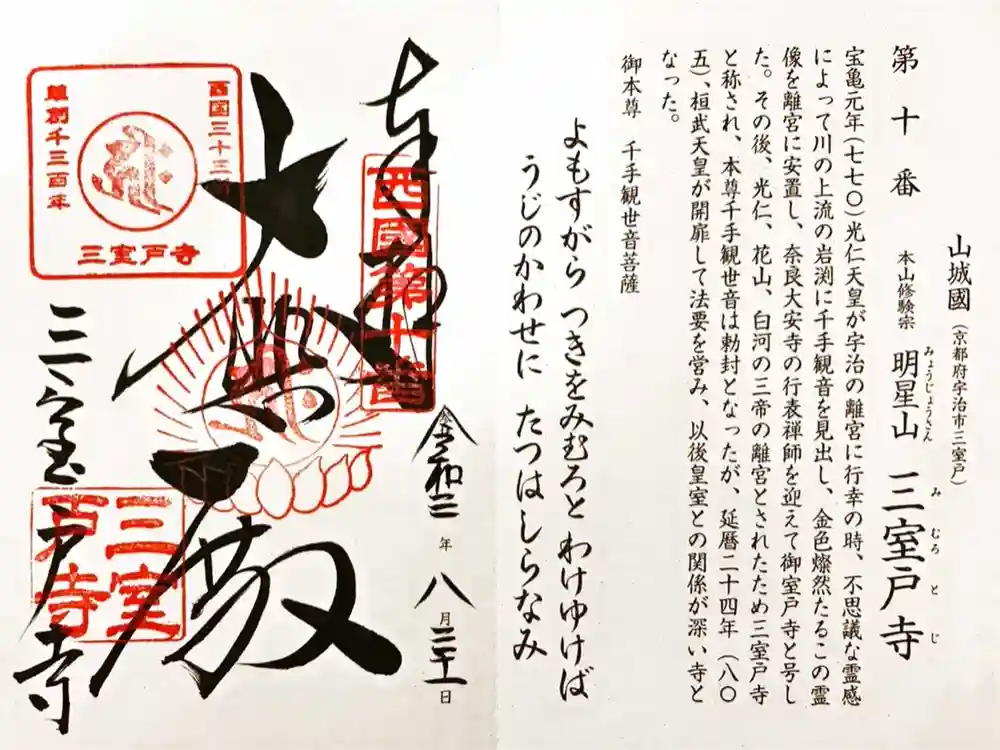 第十番
山城國(京都府宇治市三室戸)
本山修験宗 明星山 三室戸寺
みょうじょうさん
みむろとじ
宝亀元年(七七〇)光仁天皇が宇治の離宮に行幸の時、不思議な霊感
によって川の上流の岩渕に千手観音を見出し、金色燦然たるこの霊
像を離宮に安置し、奈良大安寺の行表禅師を迎えて御室戸寺と号し
た。その後、光仁、花山、白河の三帝の離宮とされたため三室戸寺
と称され、本尊千手観世音は勅封となったが、延暦二十四年(八〇
五)、桓武天皇が開扉して法要を営み、以後皇室との関係が深い寺と
なった。
御本尊 千手観世音菩薩
よもすがら つきをみむろと わけゆけば
うじのかわせに たつはしらなみ
奉拝
西國第十番
令和二年八月三十一日
大悲殿
西国三十三所
草創千三百年
三室戸寺
三室戸寺
三室戸寺